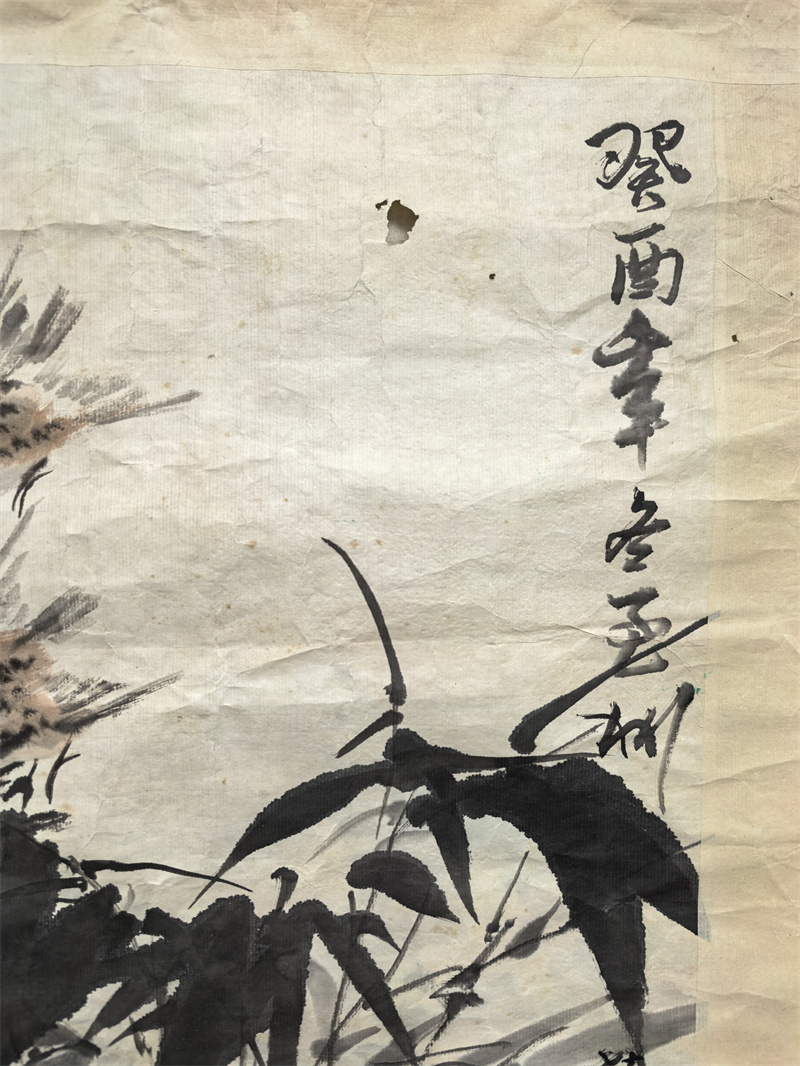 癸酉年冬至